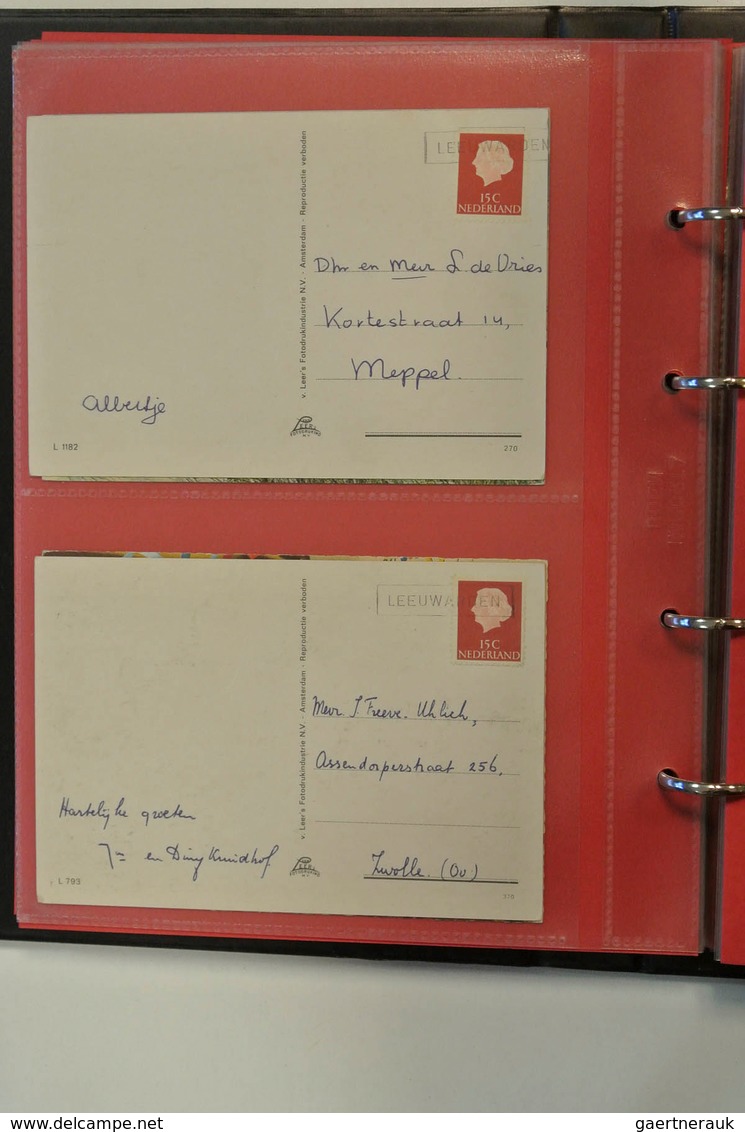 LEEUWARDEN
15 C
NEDERLAND
v. Leer's Fotodrukindustrie N.V. - Amsterdam - Reproductie verboden
Dhr en Mevr S. de Vries
Kortestraat 14,
Meppel.
Albertje
L 1182
270
LEEUWARDEN
15 C
NEDERLAND
v. Leer's Fotodrukindustrie N.V. - Amsterdam - Reproductie verboden
Mevr. J. Freeve. Uhlich,
Assendorperstraat 256,
Zwolle. (Ov)
Hartelijke groeten
en Diny Kruidhof
L 793
310
www.delcampe.net
gaertnerauk